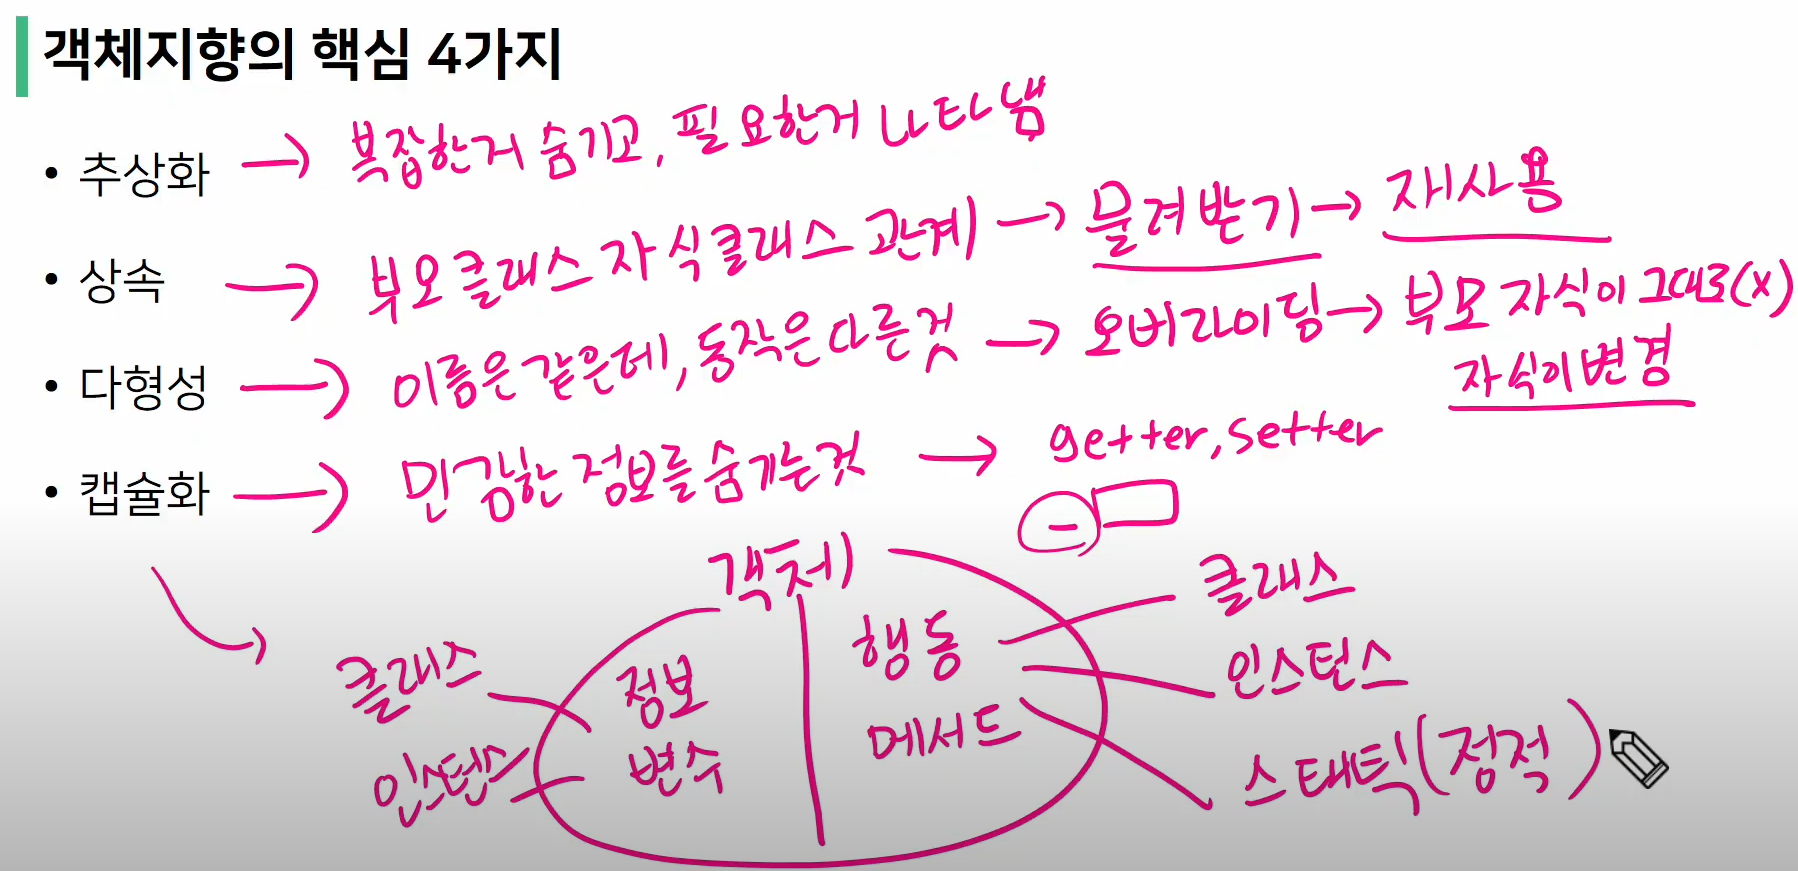 객체지향의 핵심 4가지
• 추상화 → 복잡한거 숨기고, 필요한거 나타냄
• 상속 → 부모클래스 자식클래스 관계 → 물려받기 → 재사용
• 다형성 → 이름은 같은데, 동작은 다른것 → 오버라이딩 → 부모 자식이 그대로(x)
자식이 변경
• 캡슐화 → 민감한 정보를 숨기는것 → getter, setter
객체
클래스 정보 행동 클래스
인스턴스 변수 메서드 인스턴스
스태틱(정적)